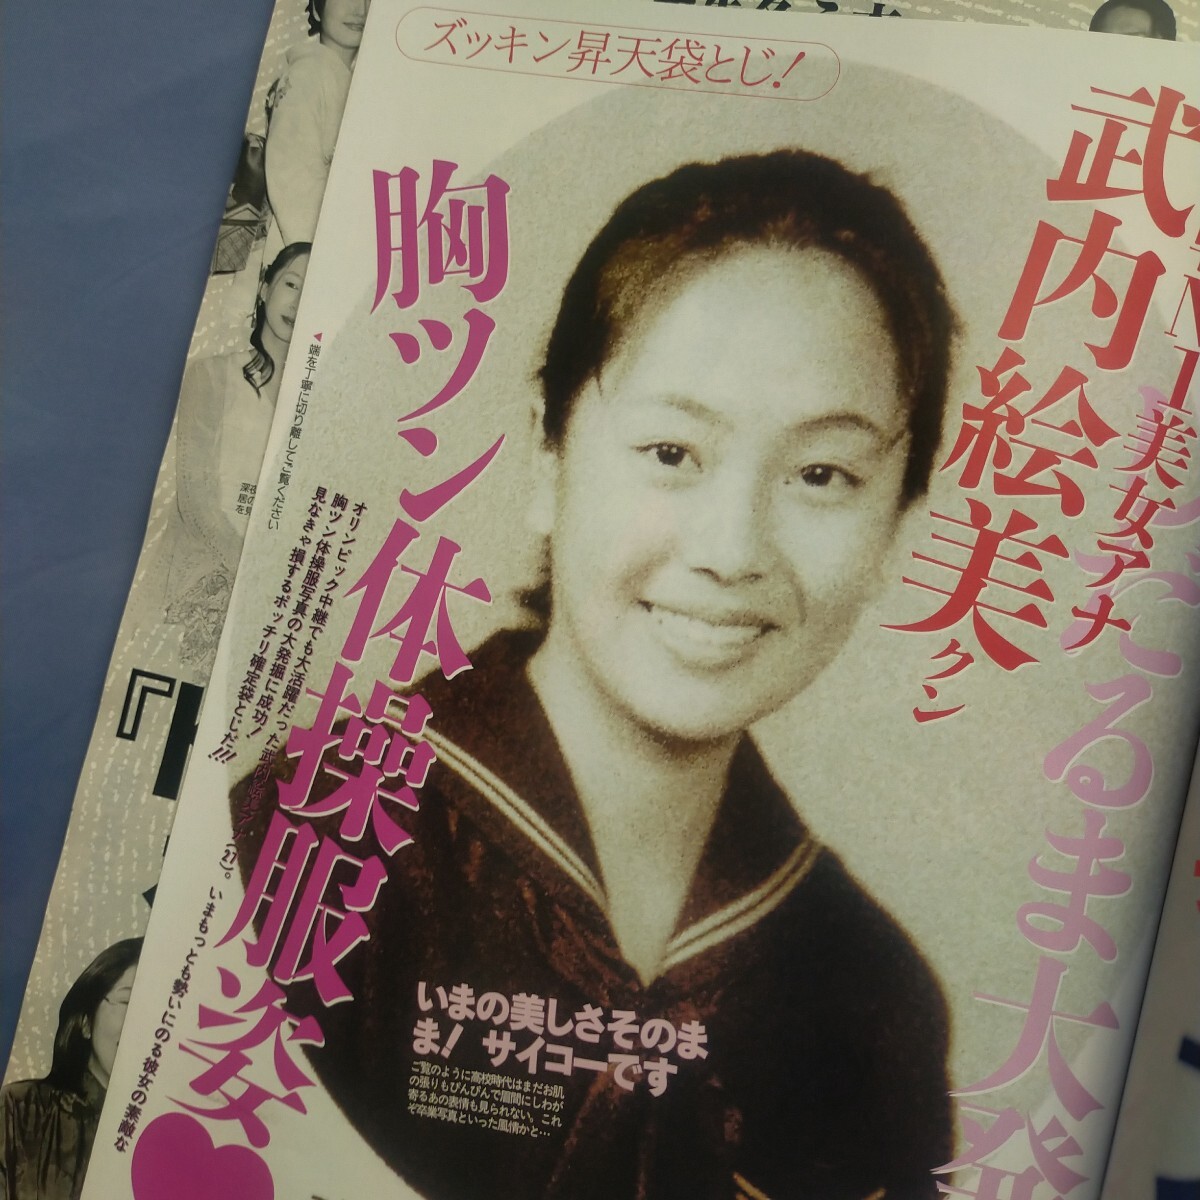 ズッキン昇天袋とじ!
美女アナ
武内絵美クン
たるま大発
胸ツン体操服姿
◀端を丁寧に切り離してご覧ください
オリンピック中継でも大活躍だった武内絵美アナ(27)。いまもっとも勢いにのる彼女の素敵な
胸ツン体操服写真の大発掘に成功!
見なきゃ損するポッチリ確定袋とじだ!!!
いまの美しさそのま
ま! サイコーです
ご覧のように高校時代はまだお肌
の張りもぴんぴんで眉間にしわが
寄るあの表情も見られない。これ
ぞ卒業写真といった風情かと…